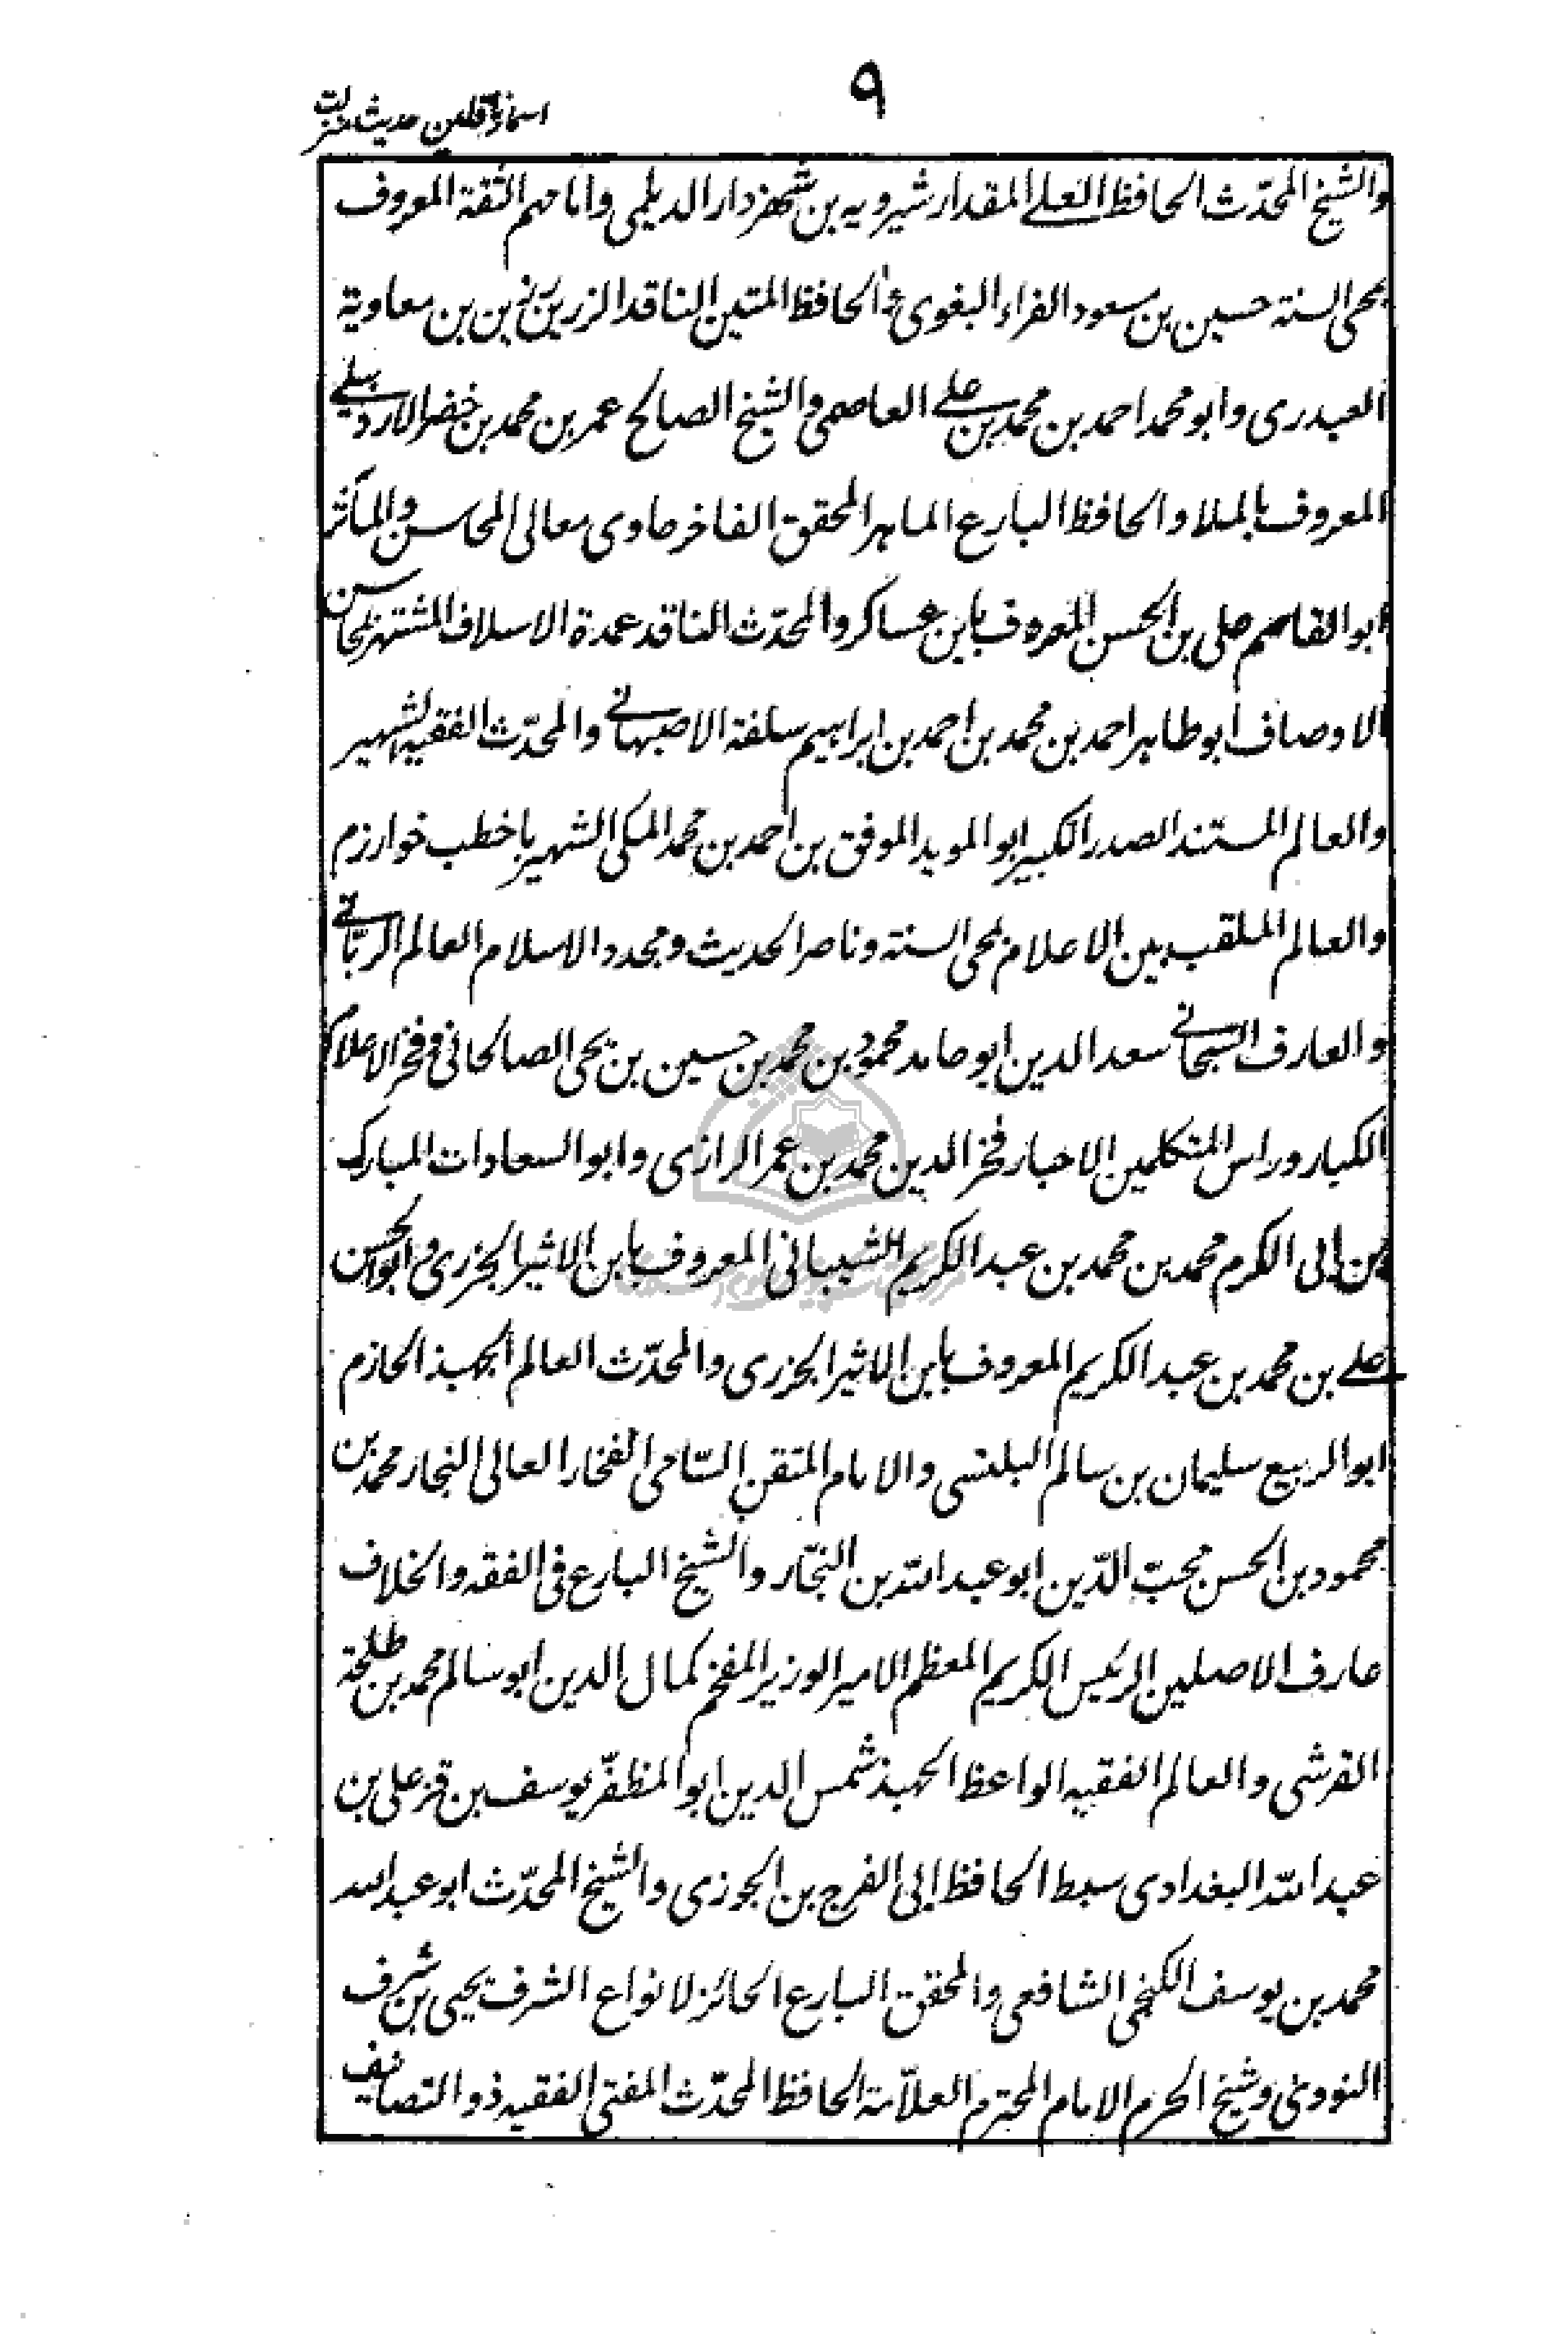 ٩
اسماء ناقلین حدیث منزلت
والشیخ المحدّث الحافظ العلے المقدار شیرویه بن شهردار الدیلمی وامامهم الثقة المعروف
بمحی السنة حسین بن مسعود الفراء البغوی والحافظ المتین الناقد الرزین رزین بن معاویة
العبدری وابو محمد احمد بن محمد بن علے العاصمی والشیخ الصالح عمر بن محمد بن خضر الاردبیلے
المعروف بالملا والحافظ البارع الماهر المحقق الفاخر حاوی معالی المحاسن والمآثر
ابوالقاسم علی بن الحسن المعروف بابن عساکر والمحدّث الناقد عمدة الاسلاف المشتهر بمحاسن
الاوصاف ابو طاهر احمد بن محمد بن احمد بن ابراهیم سلفة الاصبهانے والمحدّث الفقیه الشهیر
والعالم المستند الصدر الکبیر ابو الموید الموفق بن احمد بن محمد المکی الشهیر باخطب خوارزم
والعالم الملقب بین الاعلام بمحی السنة وناصر الحدیث ومجدد الاسلام العالم الربّانے
والعارف السبحانے سعد الدین ابو حامد محمود بن محمد بن حسین بن یحی الصالحانی وفخر الاعلام
الکبار وراس المتکلمین الاحبار فخر الدین محمد بن عمر الرازی وابو السعادات المبارک
بن ابی الکرم محمد بن محمد بن عبد الکریم الشیبانی المعروف بابن الاثیر الجزری وابو الحسن
علے بن محمد بن عبد الکریم المعروف بابن الاثیر الجزری والمحدّث العالم الجهبذ الحازم
ابو الربیع سلیمان بن سالم البلنسی والامام المتقن السّامی الفخار العالی النجار محمد بن
محمود بن الحسن محبّ الدّین ابو عبد الله بن النجّار والشیخ البارع فی الفقه والخلاف
عارف الاصلین الرئیس الکریم المعظم الامیر الوزیر المفخم کمال الدین ابو سالم محمد بن طلحة
القرشی والعالم الفقیه الواعظ الجهبذ شمس الدین ابو المظفّر یوسف بن قزعلی بن
عبد الله البغدادی سبط الحافظ ابی الفرج بن الجوزی والشیخ المحدّث ابو عبد الله
محمد بن یوسف الکنجی الشافعی والمحقق البارع الحائز لانواع الشرف یحیی بن شرف
النووی وشیخ الحرم الامام المحترم العلّامة الحافظ المحدّث المفتی الفقیه ذو التصانیف